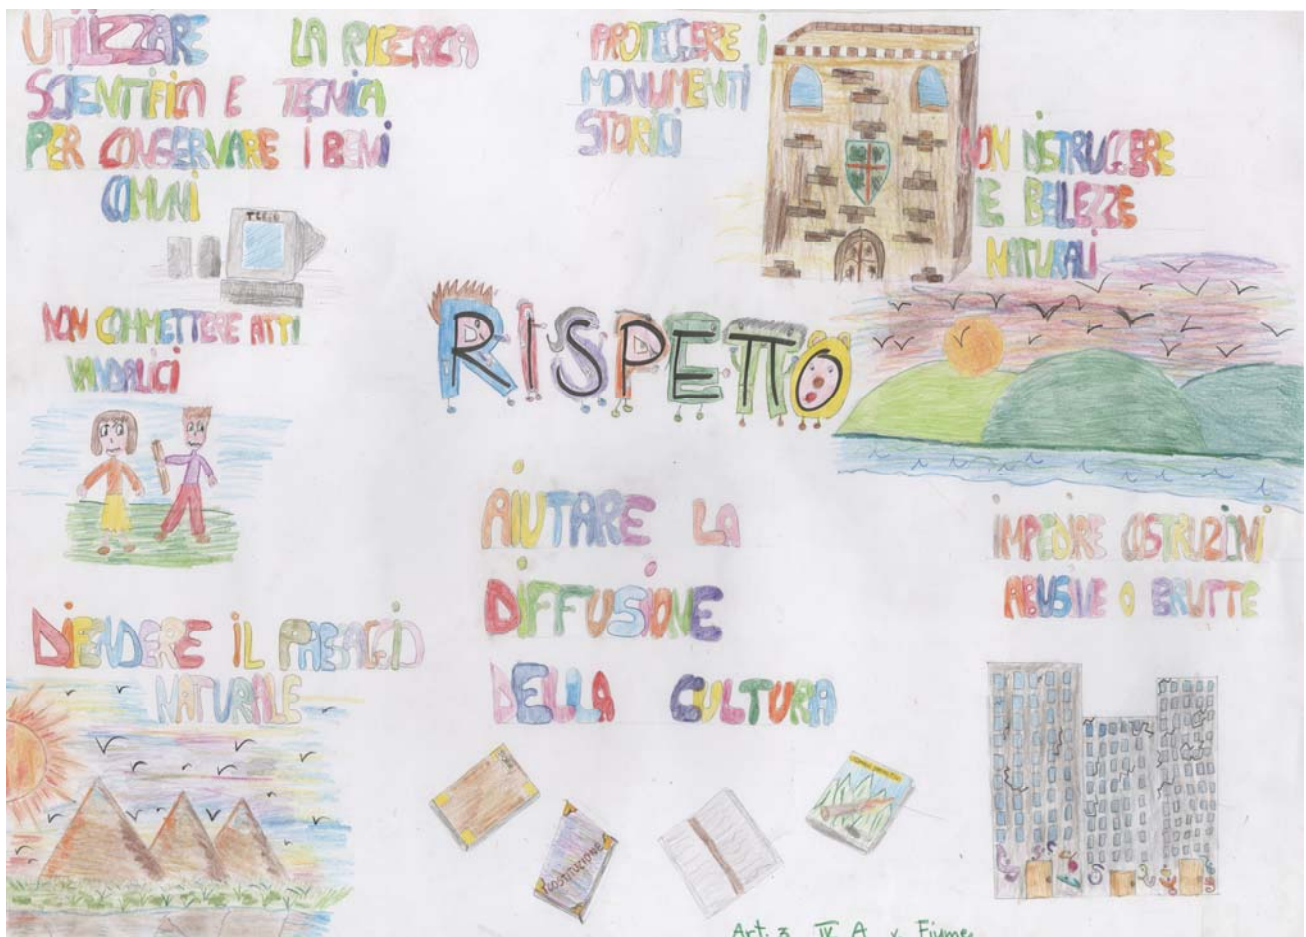 UTILIZZARE LA RICERCA
SCIENTIFICA E TECNICA
PER CONSERVARE I BENI
COMUNI
PROTEGGERE I
MONUMENTI
STORICI
NON DISTRUGGERE
LE BELLEZZE
NATURALI
NON COMMETTERE ATTI
VANDALICI
RISPETTO
AIUTARE LA
DIFFUSIONE
DELLA CULTURA
IMPEDIRE COSTRUZIONI
ABUSIVE O BRUTTE
DIFENDERE IL PAESAGGIO
NATURALE
COSTITUZIONE
Art. 3 IV A v. Fiume